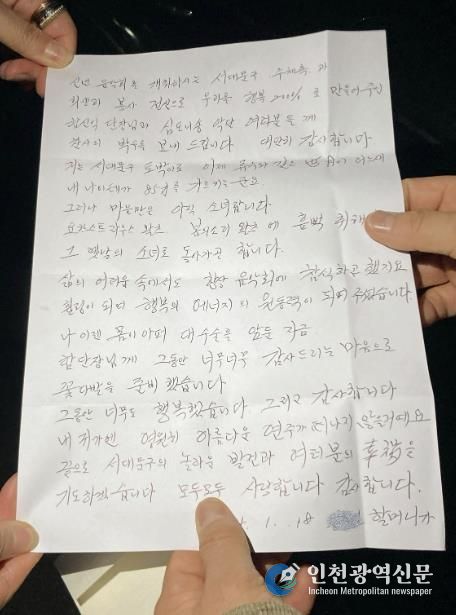 신년 음악회를 개최하시는 서대문구 주최측과
희생과 봉사 정신으로 우리를 행복 200% 로 만들어 주신
함신익 단장님과 심포니송 악단 여러분들께
감사의 박수를 보내 드립니다 대단히 감사합니다
저는 서대문구 토박이로 이제 유수와 같은 세월이 어느새
내 나이테가 을 가르키는군요
그러나 마음만은 아직 소녀랍니다
요한스트라우스 왈츠 봄의소리 왈츠에 흠뻑 취해
그 옛날의 소녀로 돌아가곤 합니다
삶의 어려움 속에서도 항상 음악회에 참석하곤 했지요
힐링이 되며 행복의 에너지의 원동력이 되어 주었습니다
나 이젠 몸이 아퍼 대수술을 앞둔 지금
함단장님께 그동안 너무너무 감사드리는 마음으로
꽃다발을 준비 했습니다
그동안 너무도 행복했습니다 그리고 감사합니다
내 귀가엔 영원히 아름다운 연주가 떠나지 않을거예요
끝으로 서대문구의 놀라운 발전과 여러분의 幸福을
기도하겠습니다 모두모두 사랑합니다 감사합니다.
1. .18 할머니가
인천광역신문
Incheon Metropolitan newspaper